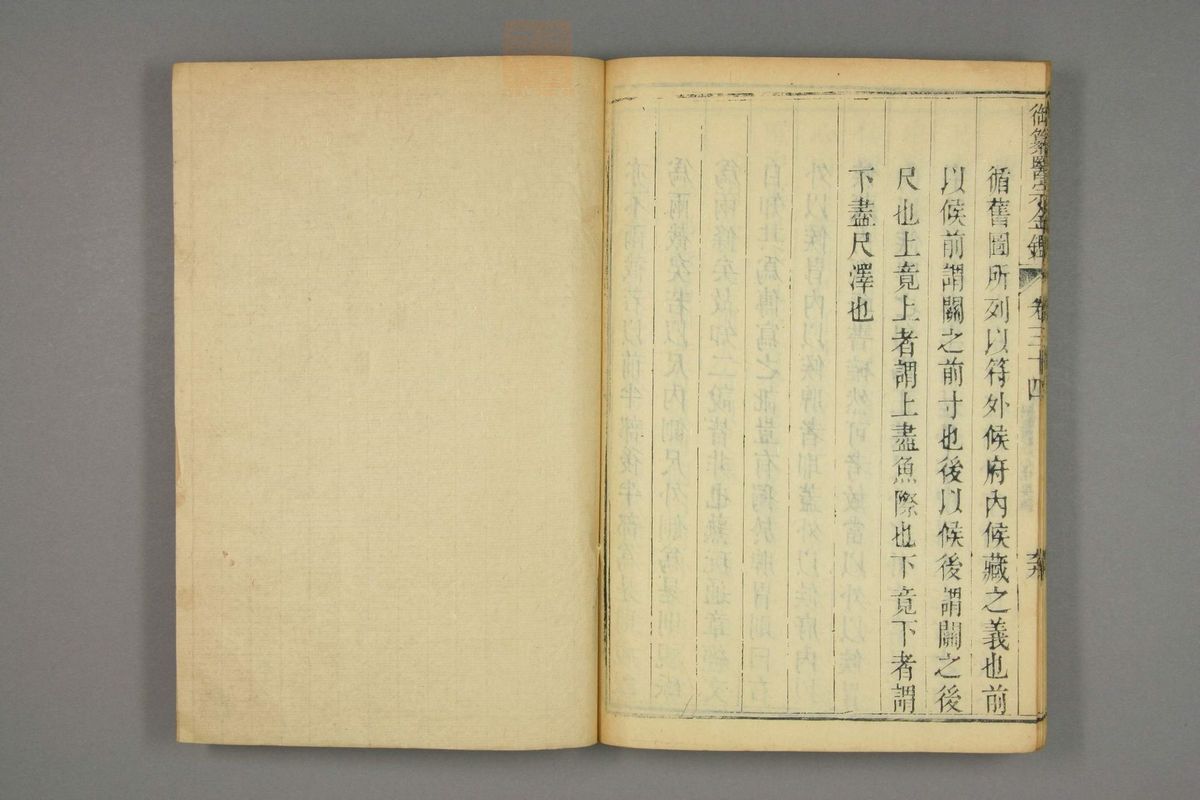 御纂醫宗金鑑 卷三十四
循舊圖所列以符外候府內候藏之義也前
以候前謂關之前寸也後以候後謂關之後
尺也上竟上者謂上盡魚際也下竟下者謂
下盡尺澤也